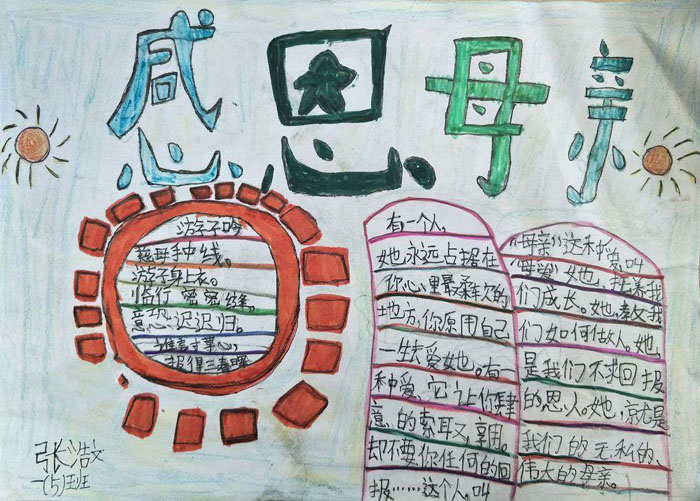 感恩母亲
游子吟
慈母手中线。
游子身上衣。
临行密密缝,
意恐迟迟归。
谁言寸草心,
报得三春晖
有一个人,
她永远占据在
你心里最柔软的
地方,你原用自己
一生去爱她。有一
种爱,它让你肆
意的索取,享用,
却不要你任何的回
报……这个人,叫
"母亲"这种爱,叫
"母爱"她,抚养我
们成长。她,教我
们如何做人。她,
是我们不求回报
的恩人。她,就是
我们的无私的、
伟大的母亲。
张浩文
一(5)班